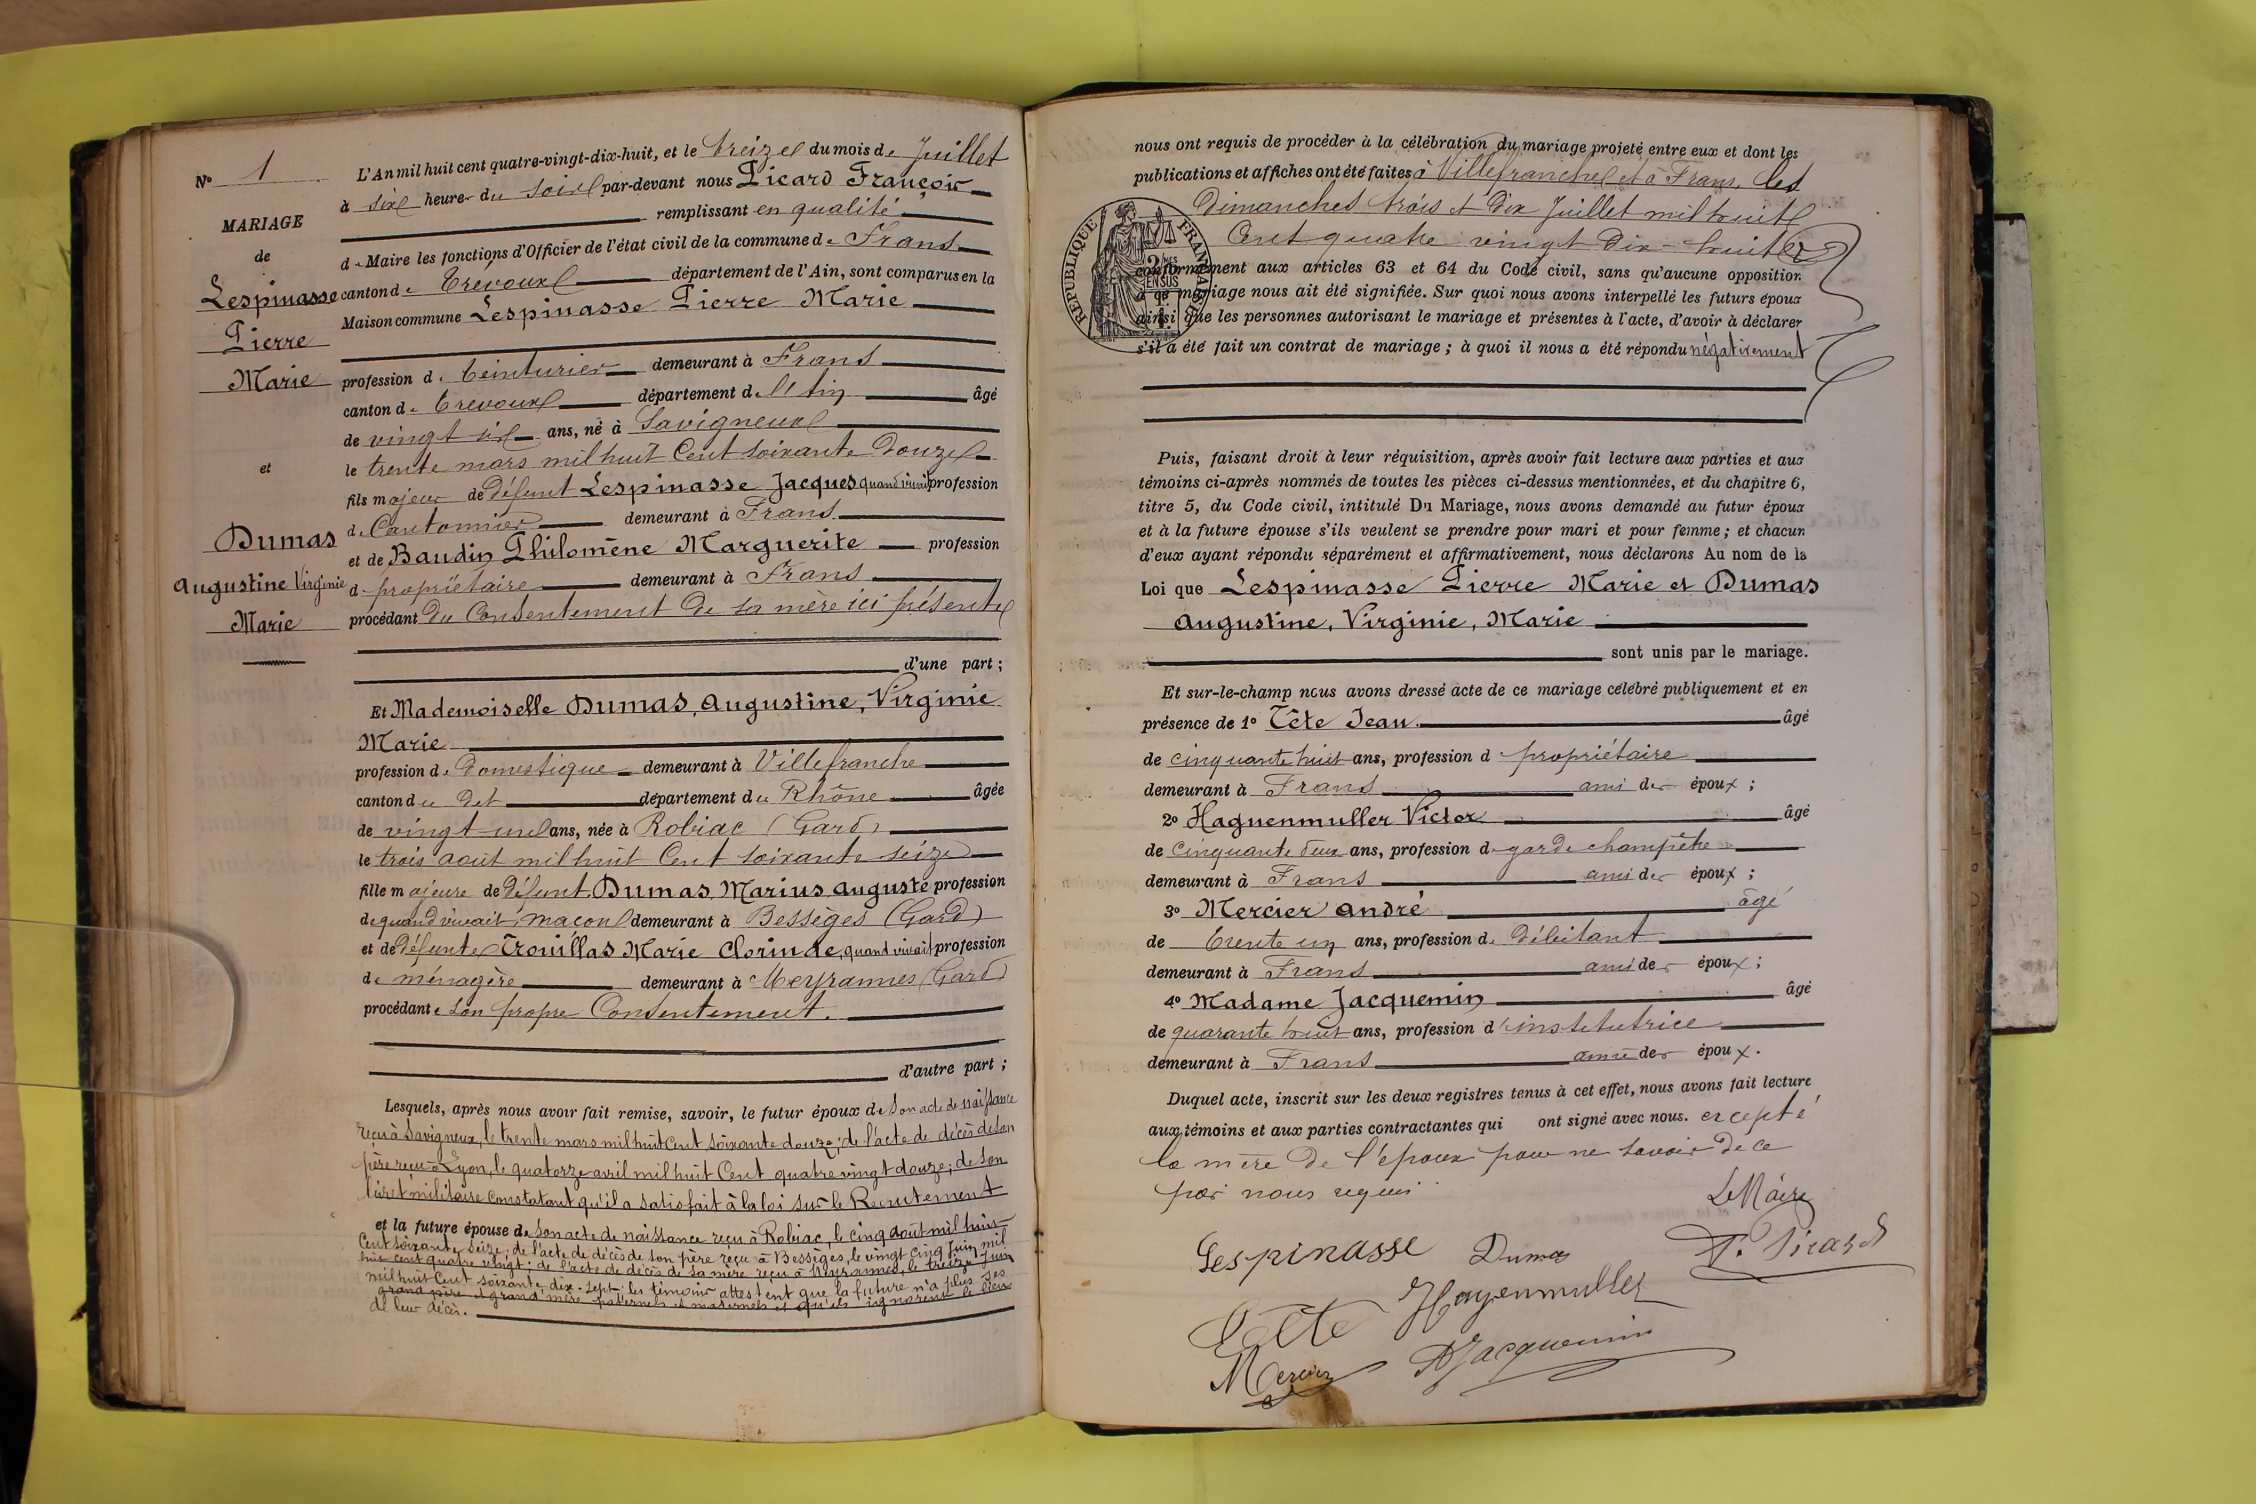 N° 1
MARIAGE
de
Lespinasse
Pierre
Marie
et
Dumas
Augustine Virginie
Marie
L'An mil huit cent quatre-vingt-dix-huit, et le treize du mois de Juillet
à six heures du soir par-devant nous Picard François
remplissant en qualité
de Maire les fonctions d'Officier de l'état civil de la commune de Frans
canton de Trévoux département de l'Ain, sont comparus en la
Maison commune Lespinasse Pierre Marie
profession de teinturier demeurant à Frans
canton de Trevoux département de l'Ain âgé
de vingt six ans, né à Savigneux
le trente mars mil huit Cent soixante Douze
fils majeur de défunt Lespinasse Jacques quand vivait profession
de Cantonnier demeurant à Frans
et de Baudin Philomène Marguerite profession
de propriétaire demeurant à Frans
procédant du Consentement de sa mère ici présente
d'une part ;
Et Mademoiselle Dumas, Augustine, Virginie
Marie
profession de Domestique demeurant à Villefranche
canton du dit département du Rhône âgée
de vingt un ans, née à Robiac (Gard)
le trois août mil huit Cent soixante seize
fille majeure de défunt Dumas Marius Auguste profession
de quand vivait maçon demeurant à Bessèges (Gard)
et de défunte Trouillas Marie Clorinde, quand vivait profession
de ménagère demeurant à Meyrannes (Gard)
procédant de son propre Consentement.
d'autre part ;
Lesquels, après nous avoir fait remise, savoir, le futur époux de son acte de naissance
reçu à Savigneux, le trente mars mil huit Cent soixante douze ; de l'acte de décès de son
père reçu à Lyon, le quatorze avril mil huit Cent quatre vingt douze ; de son
livret militaire constatant qu'il a satisfait à la loi sur le Recrutement
et la future épouse de son acte de naissance reçu à Robiac, le cinq août mil huit
Cent soixante seize ; de l'acte de décès de son père reçu à Bessèges, le vingt cinq Juin mil
huit cent quatre vingt ; de l'acte de décès de sa mère reçu à Meyrannes, le treize Juin
mil huit Cent soixante dix-sept ; les témoins attestent que la future n'a plus ses
grand père et grand mère paternels et maternels et qu'ils ignorent le lieu
de leur décès.
nous ont requis de procéder à la célébration du mariage projeté entre eux et dont les
publications et affiches ont été faites à Villefranche et à Frans, les
Dimanches trois et dix Juillet mil huit
Cent quatre vingt dix-huit
REPUBLIQUE FRANÇAISE
2 MES
EN SUS
conformément aux articles 63 et 64 du Code civil, sans qu'aucune opposition
à ce mariage nous ait été signifiée. Sur quoi nous avons interpellé les futurs époux
ainsi que les personnes autorisant le mariage et présentes à l'acte, d'avoir à déclarer
s'il a été fait un contrat de mariage ; à quoi il nous a été répondu négativement
Puis, faisant droit à leur réquisition, après avoir fait lecture aux parties et aux
témoins ci-après nommés de toutes les pièces ci-dessus mentionnées, et du chapitre 6,
titre 5, du Code civil, intitulé Du Mariage, nous avons demandé au futur époux
et à la future épouse s'ils veulent se prendre pour mari et pour femme ; et chacun
d'eux ayant répondu séparément et affirmativement, nous déclarons Au nom de la
Loi que Lespinasse Pierre Marie et Dumas
Augustine, Virginie, Marie
sont unis par le mariage.
Et sur-le-champ nous avons dressé acte de ce mariage célébré publiquement et en
présence de 1° Tête Jean âgé
de cinquante huit ans, profession de propriétaire
demeurant à Frans ami des époux ;
2° Haguenmuller Victor âgé
de Cinquante deux ans, profession de garde champêtre
demeurant à Frans ami des époux ;
3° Mercier André âgé
de trente un ans, profession de Débitant
demeurant à Frans ami des époux ;
4° Madame Jacquemin âgé
de quarante huit ans, profession d'institutrice
demeurant à Frans amie des époux.
Duquel acte, inscrit sur les deux registres tenus à cet effet, nous avons fait lecture
aux témoins et aux parties contractantes qui ont signé avec nous. excepté
la mère de l'époux pour ne savoir de ce
par nous requis.
Le Maire
Lespinasse Dumas F. Picard
Tête Hagenmuller
Mercier A Jacquemin